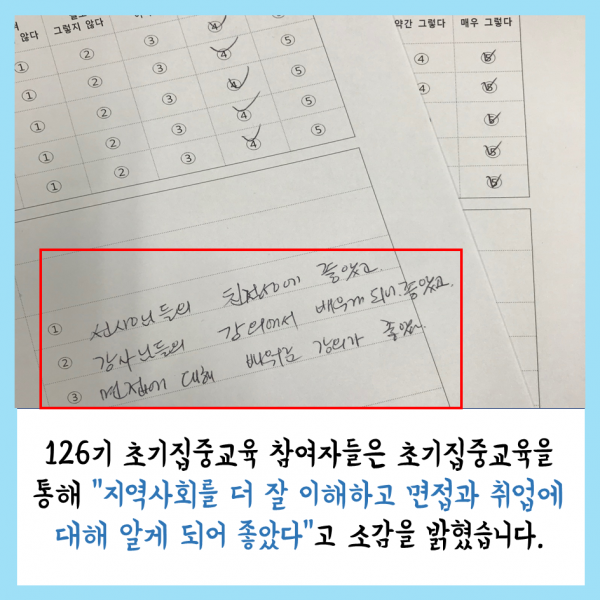 않다 그렇지 않다 약간 그렇다 매우 그렇다
① ② ③ ④ ⑤ ④ ⑤
① ② ③ ④ ⑤ ④ ⑤
① ② ③ ④ ⑤ ⑤
① ② ③ ④ ⑤ ⑤
① ② ③ ④ ⑤ ⑤
① 선생님들의 친절하에 좋았고
② 강사님들의 강의에서 배우게 되니 좋았고.
③ 면접에 대해 배우는 강의가 좋았
126기 초기집중교육 참여자들은 초기집중교육을
통해 "지역사회를 더 잘 이해하고 면접과 취업에
대해 알게 되어 좋았다"고 소감을 밝혔습니다.